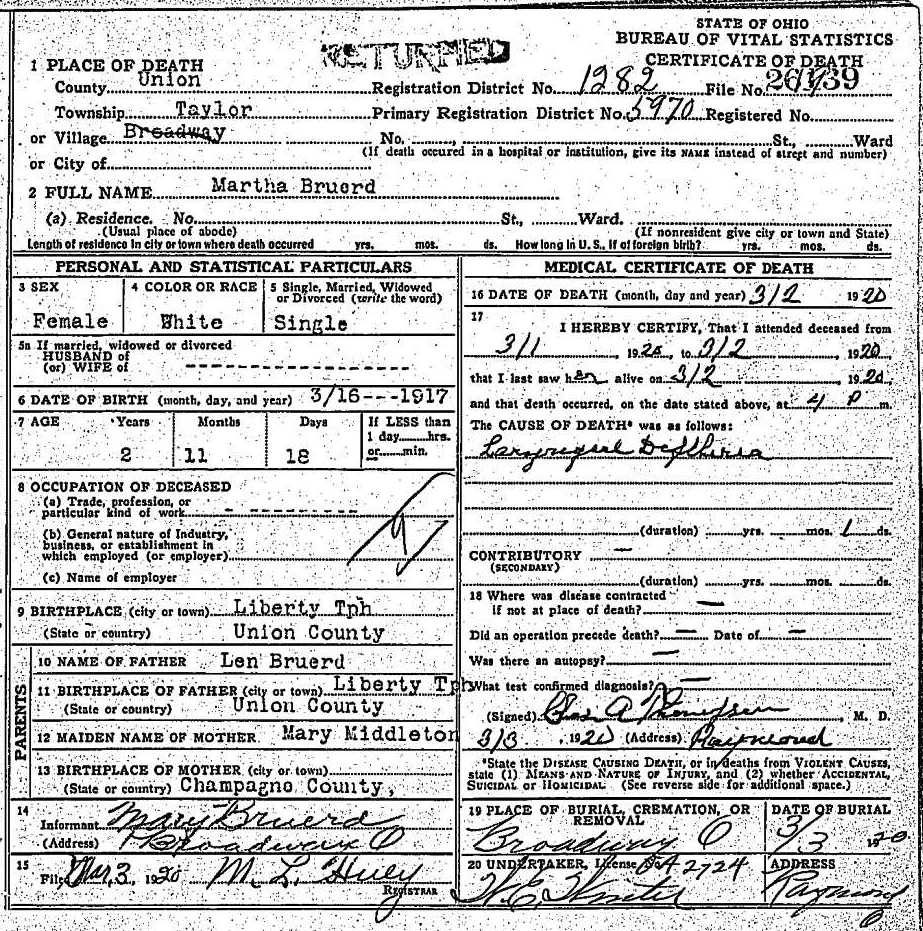 RETURNED
STATE OF OHIO
BUREAU OF VITAL STATISTICS
CERTIFICATE OF DEATH
1 PLACE OF DEATH
County Union Registration District No. 1282 File No.
Township Taylor Primary Registration District No. 5970 Registered No.
or Village Broadway No. , St., Ward
(If death occured in a hospital or institution, give its NAME instead of street and number)
or City of
2 FULL NAME Martha Bruerd
(a) Residence. No. St., Ward.
(Usual place of abode) (If nonresident give city or town and State)
Length of residence in city or town where death occurred yrs. mos. ds. How long in U. S., if of foreign birth? yrs. mos. ds.
PERSONAL AND STATISTICAL PARTICULARS
3 SEX 4 COLOR OR RACE 5 Single, Married, Widowed
or Divorced (write the word)
Female White Single
5a If married, widowed or divorced
HUSBAND of
(or) WIFE of ----------------
6 DATE OF BIRTH (month, day, and year) 3/16---1917
7 AGE Years Months Days If LESS than
1 day, hrs.
2 11 18 or min.
8 OCCUPATION OF DECEASED
(a) Trade, profession, or
particular kind of work - ---------
(b) General nature of Industry,
business, or establishment in
which employed (or employer)
(c) Name of employer
9 BIRTHPLACE (city or town) Liberty Tph
(State or country) Union County
PARENTS
10 NAME OF FATHER Len Bruerd
11 BIRTHPLACE OF FATHER (city or town) Liberty Tph
(State or country) Union County
12 MAIDEN NAME OF MOTHER Mary Middleton
13 BIRTHPLACE OF MOTHER (city or town)
(State or country) Champagne County,
14
Informant Mary Bruerd
(Address) Broadway O
15
Filed Mar. 3, 1920 M. L. Huey
REGISTRAR
MEDICAL CERTIFICATE OF DEATH
16 DATE OF DEATH (month, day and year) 3/2 1920
17
I HEREBY CERTIFY, That I attended deceased from
3/1 , 1920, to 3/2 , 1920
that I last saw her alive on 3/2 , 1920
and that death occurred, on the date stated above, at 4 P m.
The CAUSE OF DEATH* was as follows:
Laryngeal Diptheria
(duration) yrs. mos. 1 ds.
CONTRIBUTORY —
(SECONDARY)
(duration) yrs. mos. ds.
18 Where was disease contracted
if not at place of death? —
Did an operation precede death? — Date of —
Was there an autopsy? —
What test confirmed diagnosis? —
(Signed) Chas A Thompson , M. D.
3/3 , 1920 (Address) Raymond
*State the DISEASE CAUSING DEATH, or in deaths from VIOLENT CAUSES,
state (1) MEANS AND NATURE OF INJURY, and (2) whether ACCIDENTAL,
SUICIDAL or HOMICIDAL. (See reverse side for additional space.)
19 PLACE OF BURIAL, CREMATION, OR
REMOVAL DATE OF BURIAL
Broadway O 3/3 1920
20 UNDERTAKER, License No. 2724 ADDRESS
Raymond
O